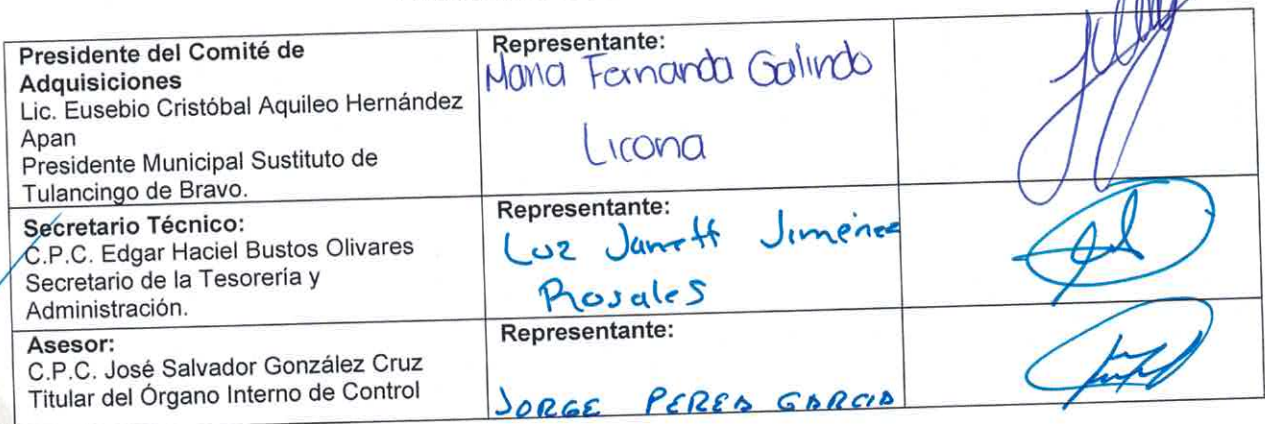 Presidente del Comité de
Adquisiciones
Lic. Eusebio Cristóbal Aquileo Hernández
Apan
Presidente Municipal Sustituto de
Tulancingo de Bravo.
Representante:
Maria Fernanda Galindo
Licona
Secretario Técnico:
C.P.C. Edgar Haciel Bustos Olivares
Secretario de la Tesorería y
Administración.
Representante:
Luz Janett Jiménez
Rosales
Asesor:
C.P.C. José Salvador González Cruz
Titular del Órgano Interno de Control
Representante:
JORGE PEREA GARCIA